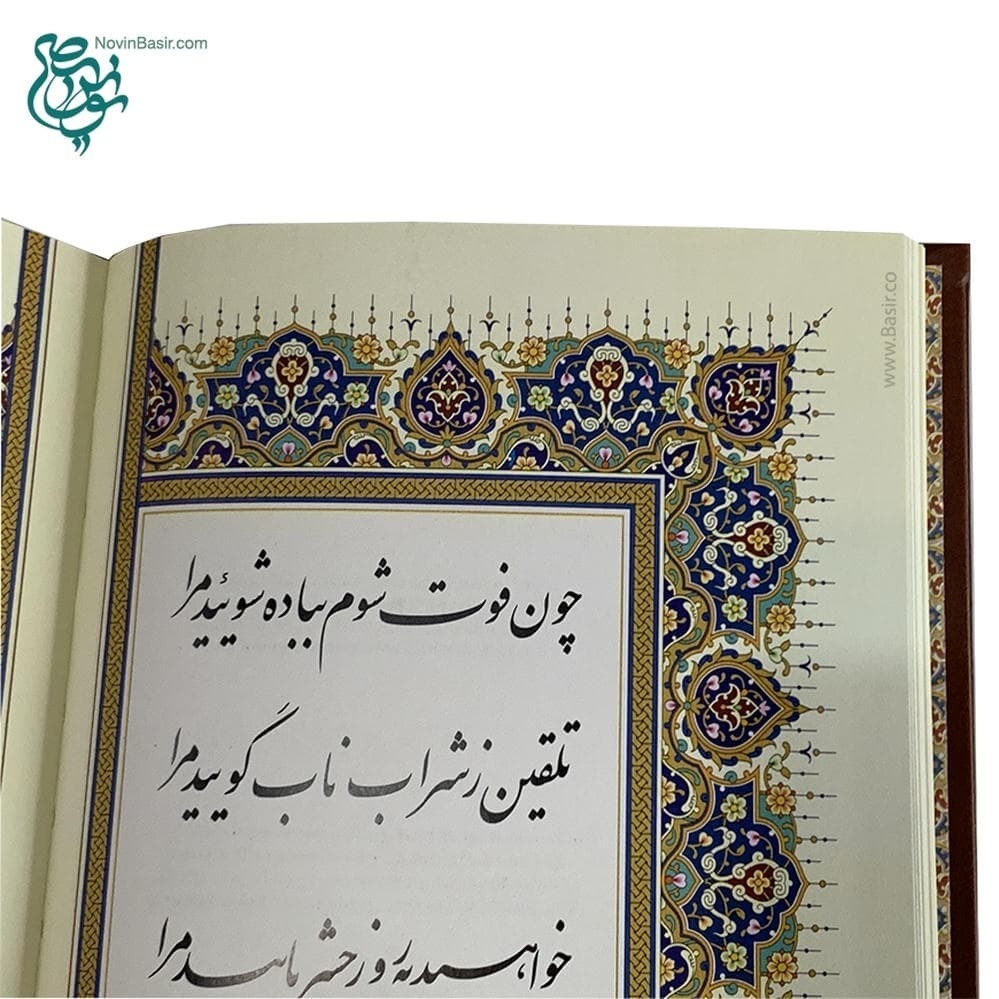 NovinBasir.com
www.Basir.co
چون فوت شوم بباده شوئید مرا
تلقین ز شراب ناب گویید مرا
خواهید به روز حشر یابید مرا